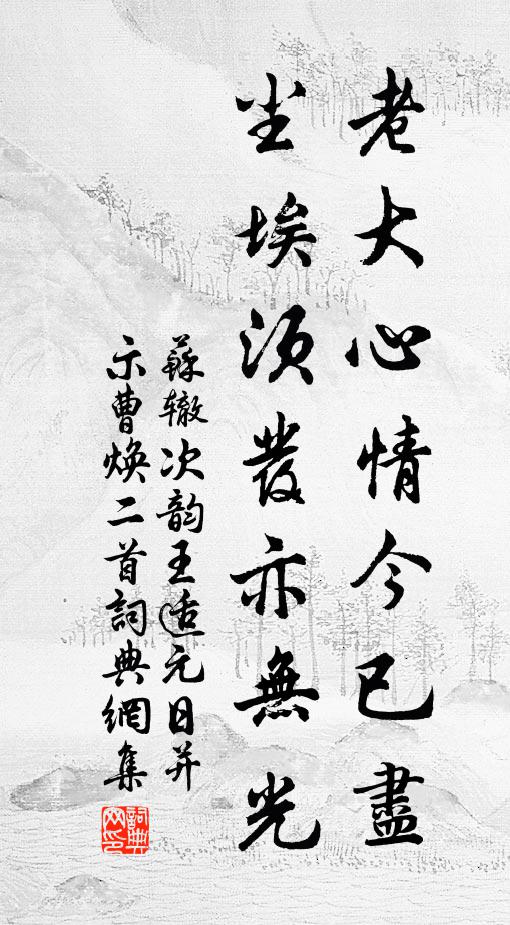 老大心情今已盡
尘埃須發亦無光
蘇辙次韵王适元日并
示曹焕二首詞典網集
詞典网印